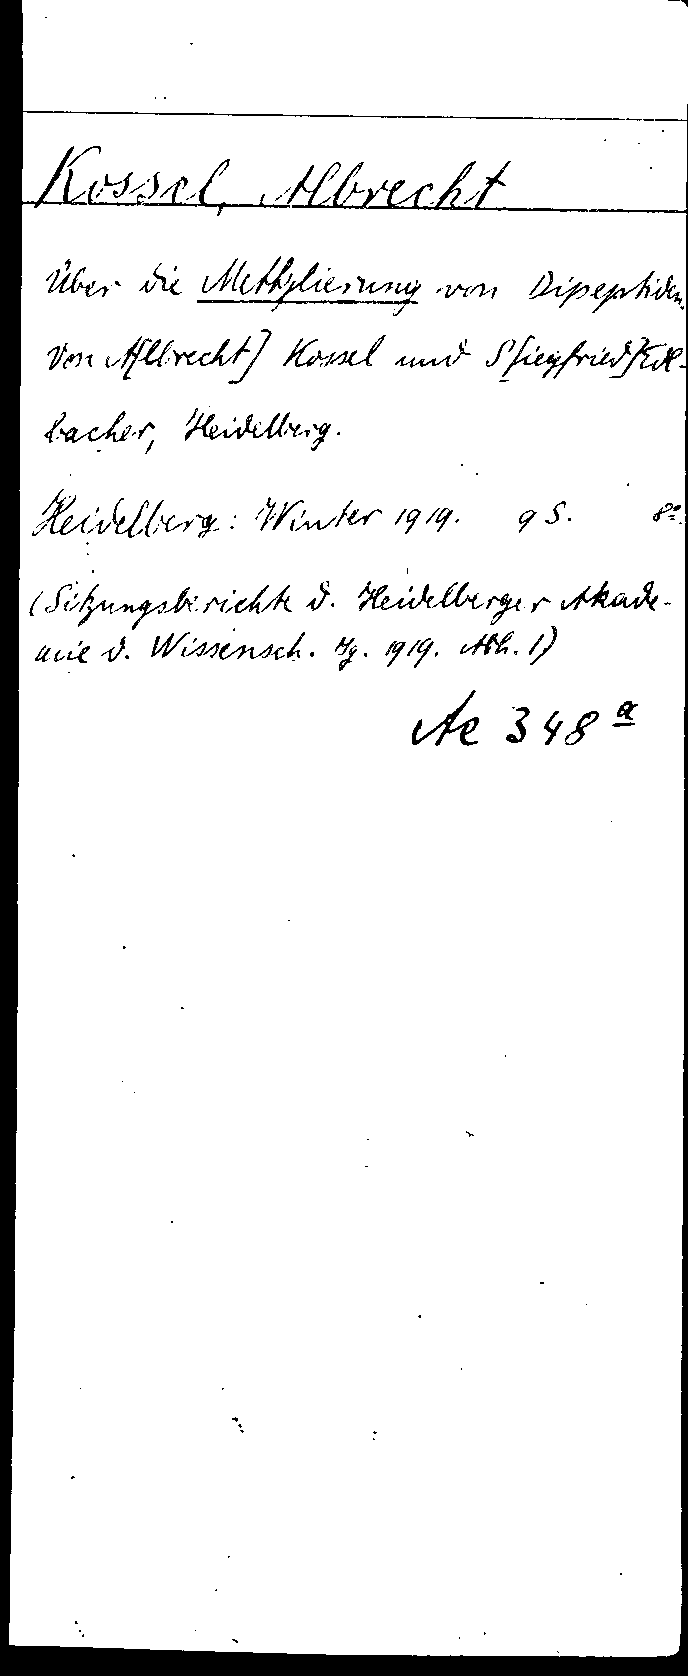 Kossel, Albrecht
Über die Methylierung von Dipeptiden.
Von A[lbrecht] Kossel und S[iegfried] Edl-
bacher, Heidelberg.
Heidelberg: Winter 1919. 9 S. 8°.
(Sitzungsberichte d. Heidelberger Akade-
mie d. Wissensch. Jg. 1919. Abh. 1)
Ae 348 a